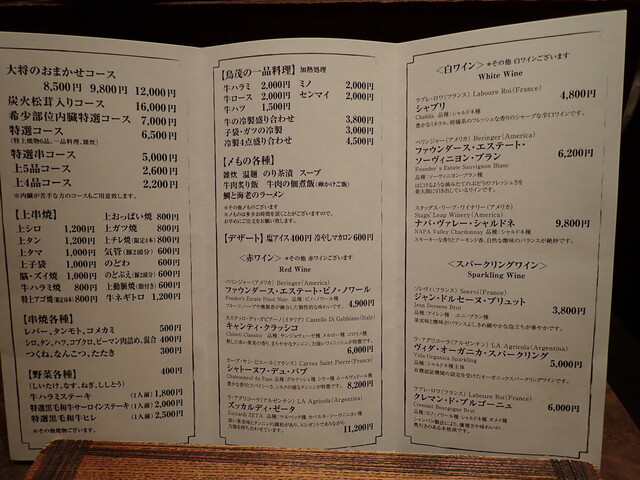 大将のおまかせコース
8,500円 9,800円 12,000円
炭火松茸入りコース 16,000円
希少部位内臓特選コース 7,000円
特選コース 6,500円
(特上焼物6品、一品料理、雑炊)
特選串コース 5,000円
上5品コース 2,600円
上4品コース 2,200円
※内臓が苦手な方のコースもご用意致します。
【上串焼】
上シロ 1,200円
上タン 1,200円
上タマ 1,000円
上子袋 1,000円
脳・ズイ焼 1,000円
牛ハラミ焼 800円
特上アゴ焼(限定15本) 800円
上おっぱい焼 800円
上ガツ焼 800円
上チレ焼(限定4本) 800円
気管(豚2部分) 600円
のどわ 600円
のどぶえ(豚2部分) 600円
上動脈焼(筋付き) 600円
牛ネギトロ 1,200円
【串焼各種】
レバー、タンモト、コメカミ 500円
シロ、タン、ハツ、コブクロ、ピーマン肉詰め、混合 400円
つくね、なんこつ、たたき 300円
【野菜各種】 400円
(しいたけ、なす、ねぎ、ししとう)
牛ハラミステーキ (1人前) 1,800円
特選黒毛和牛サーロインステーキ (1人前) 2,000円
特選黒毛和牛ヒレ (1人前) 2,500円
※その他焼物ございます。
【鳥茂の一品料理】 加熱処理
牛ハラミ 2,000円 ミノ 2,000円
牛ロース 2,000円 センマイ 2,000円
牛ハツ 1,500円
牛の冷製盛り合わせ 3,800円
子袋・ガツの冷製 3,000円
冷製4点盛り合わせ 4,500円
【〆もの各種】
雑炊 温麺 のり茶漬 スープ
牛肉炙り飯 牛肉の佃煮飯(卵かけご飯)
鯛と海老のラーメン
※その他〆ものございます
※〆ものは多少お時間を頂くことがございますので、
お早めご注文をお願い致します。
【デザート】 塩アイス 400円 冷やしマカロン 600円
＜赤ワイン＞ ※その他 赤ワインございます
Red Wine
ベリンジャー(アメリカ) Beringer(America)
ファウンダース・エステート・ピノ・ノワール
Founder's Estate Pinot Noir 品種:ピノ・ノワール種
4,900円
カステッロ・ディ・ガビアーノ(イタリア) Castello Di Gabbiano(Italy)
キャンティ・クラッシコ
6,000円
カーブ・サン・ピエール(フランス) Carves Saint Pierre(France)
シャトーヌフ・デュ・パプ
8,200円
ラ・アグリコーラ(アルゼンチン) LA Agricola(Argentina)
ズッカルディ・ゼータ
11,200円
＜白ワイン＞ ※その他 白ワインございます
White Wine
ラブレ・ロワ(フランス) Laboure Roi(France)
シャブリ 4,800円
Chablis 品種:シャルドネ種
豊かなミネラル、柑橘系のフレッシュな香りのシャープな辛口ワインです。
ベリンジャー(アメリカ) Beringer(America)
ファウンダース・エステート・
ソーヴィニヨン・ブラン 6,200円
Founder's Estate Sauvignon Blanc
品種:ソーヴィニヨン・ブラン種
スタッグス・リープ・ワイナリー(アメリカ)
Stags' Leap Winery(America)
ナパ・ヴァレー・シャルドネ 9,800円
NAPA Valley Chardonnay 品種:シャルドネ種
スモーキーな香りとアーモンド香、自然な酸味のバランスが絶妙です。
＜スパークリングワイン＞
Sparkling Wine
ソレヴィ(フランス) Soervi(France)
ジャン・ドルセーヌ・ブリュット 3,800円
Jean Dorsene Brut
品種:アイレン種 ユニ・ブラン種
ラ・アグリコーラ(アルゼンチン) LA Agricola(Argentina)
ヴィダ・オーガニカ・スパークリング
Vida Organica Sparkling 5,000円
品種:シャルドネ種主体
有機認証機関の認定を受けたオーガニックスパークリングワインです。
ラブレ・ロワ(フランス) Laboure Roi(France)
クレマン・ド・ブルゴーニュ 6,000円
Cremant Bourgogne Brut
品種:ピノ・ノワール種 シャルドネ種 ガメイ種